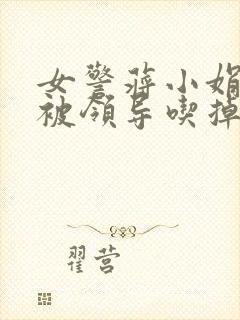 女警蒋小娟
被领导喫掉
翟营